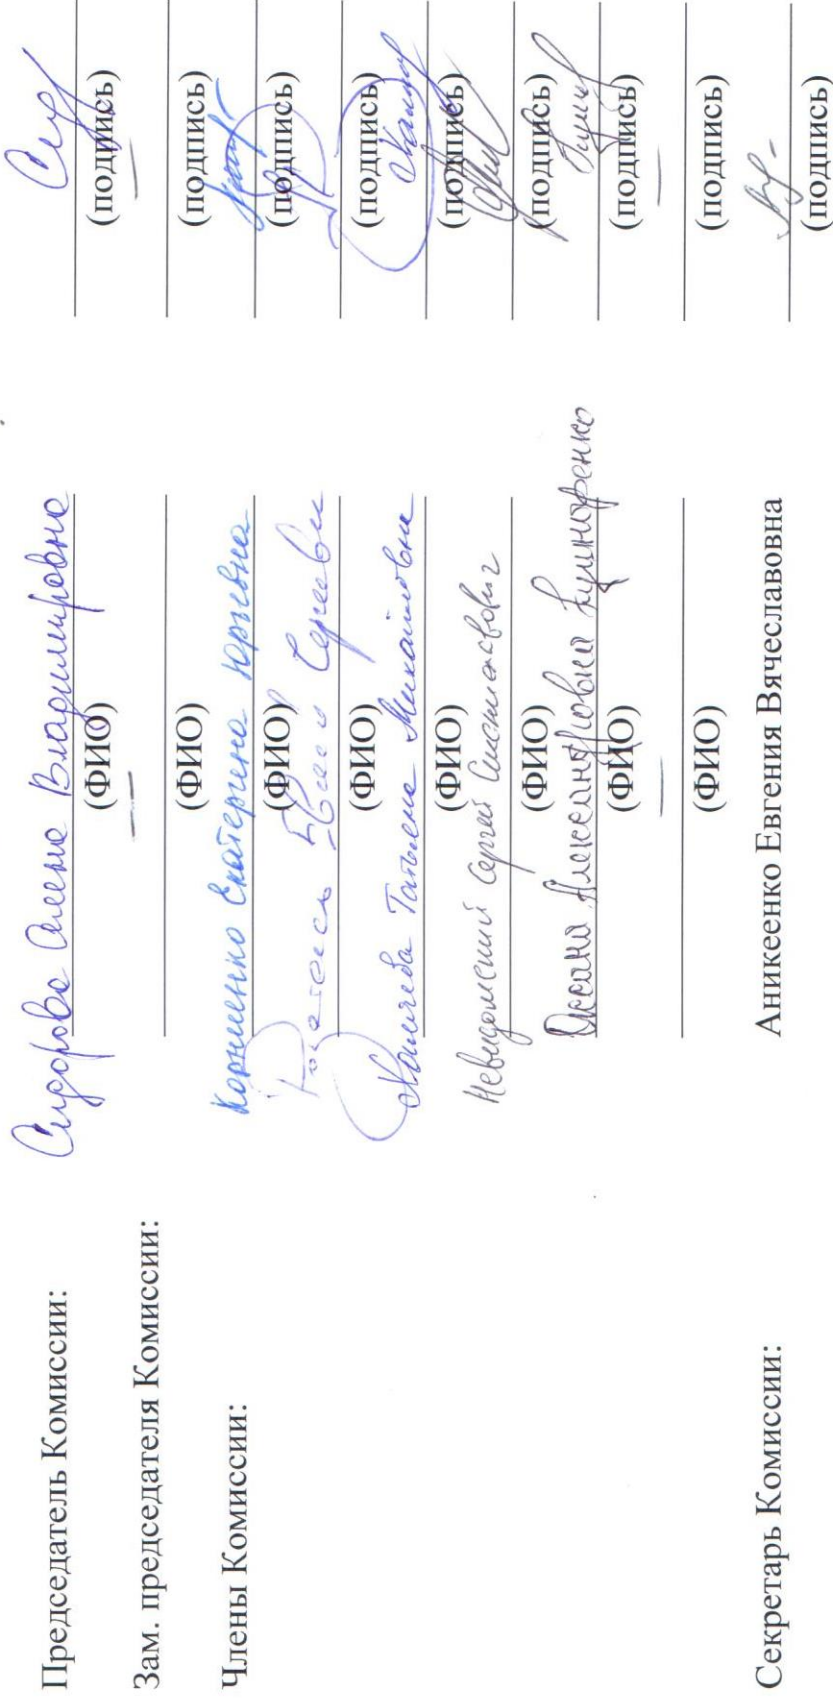 Председатель Комиссии: Сидорова Алена Владимировна
(ФИО) (подпись)
Зам. председателя Комиссии: — —
(ФИО) (подпись)
Члены Комиссии: Корниенко Екатерина Юрьевна
(ФИО) (подпись)
(ФИО) (подпись)
Татьяна Михайловна
(ФИО) (подпись)
Невидомский Сергей
(ФИО) (подпись)
Оксана Александровна Кушнаренко
(ФИО) (подпись)
— —
(ФИО) (подпись)
Секретарь Комиссии: Аникеенко Евгения Вячеславовна
(подпись)